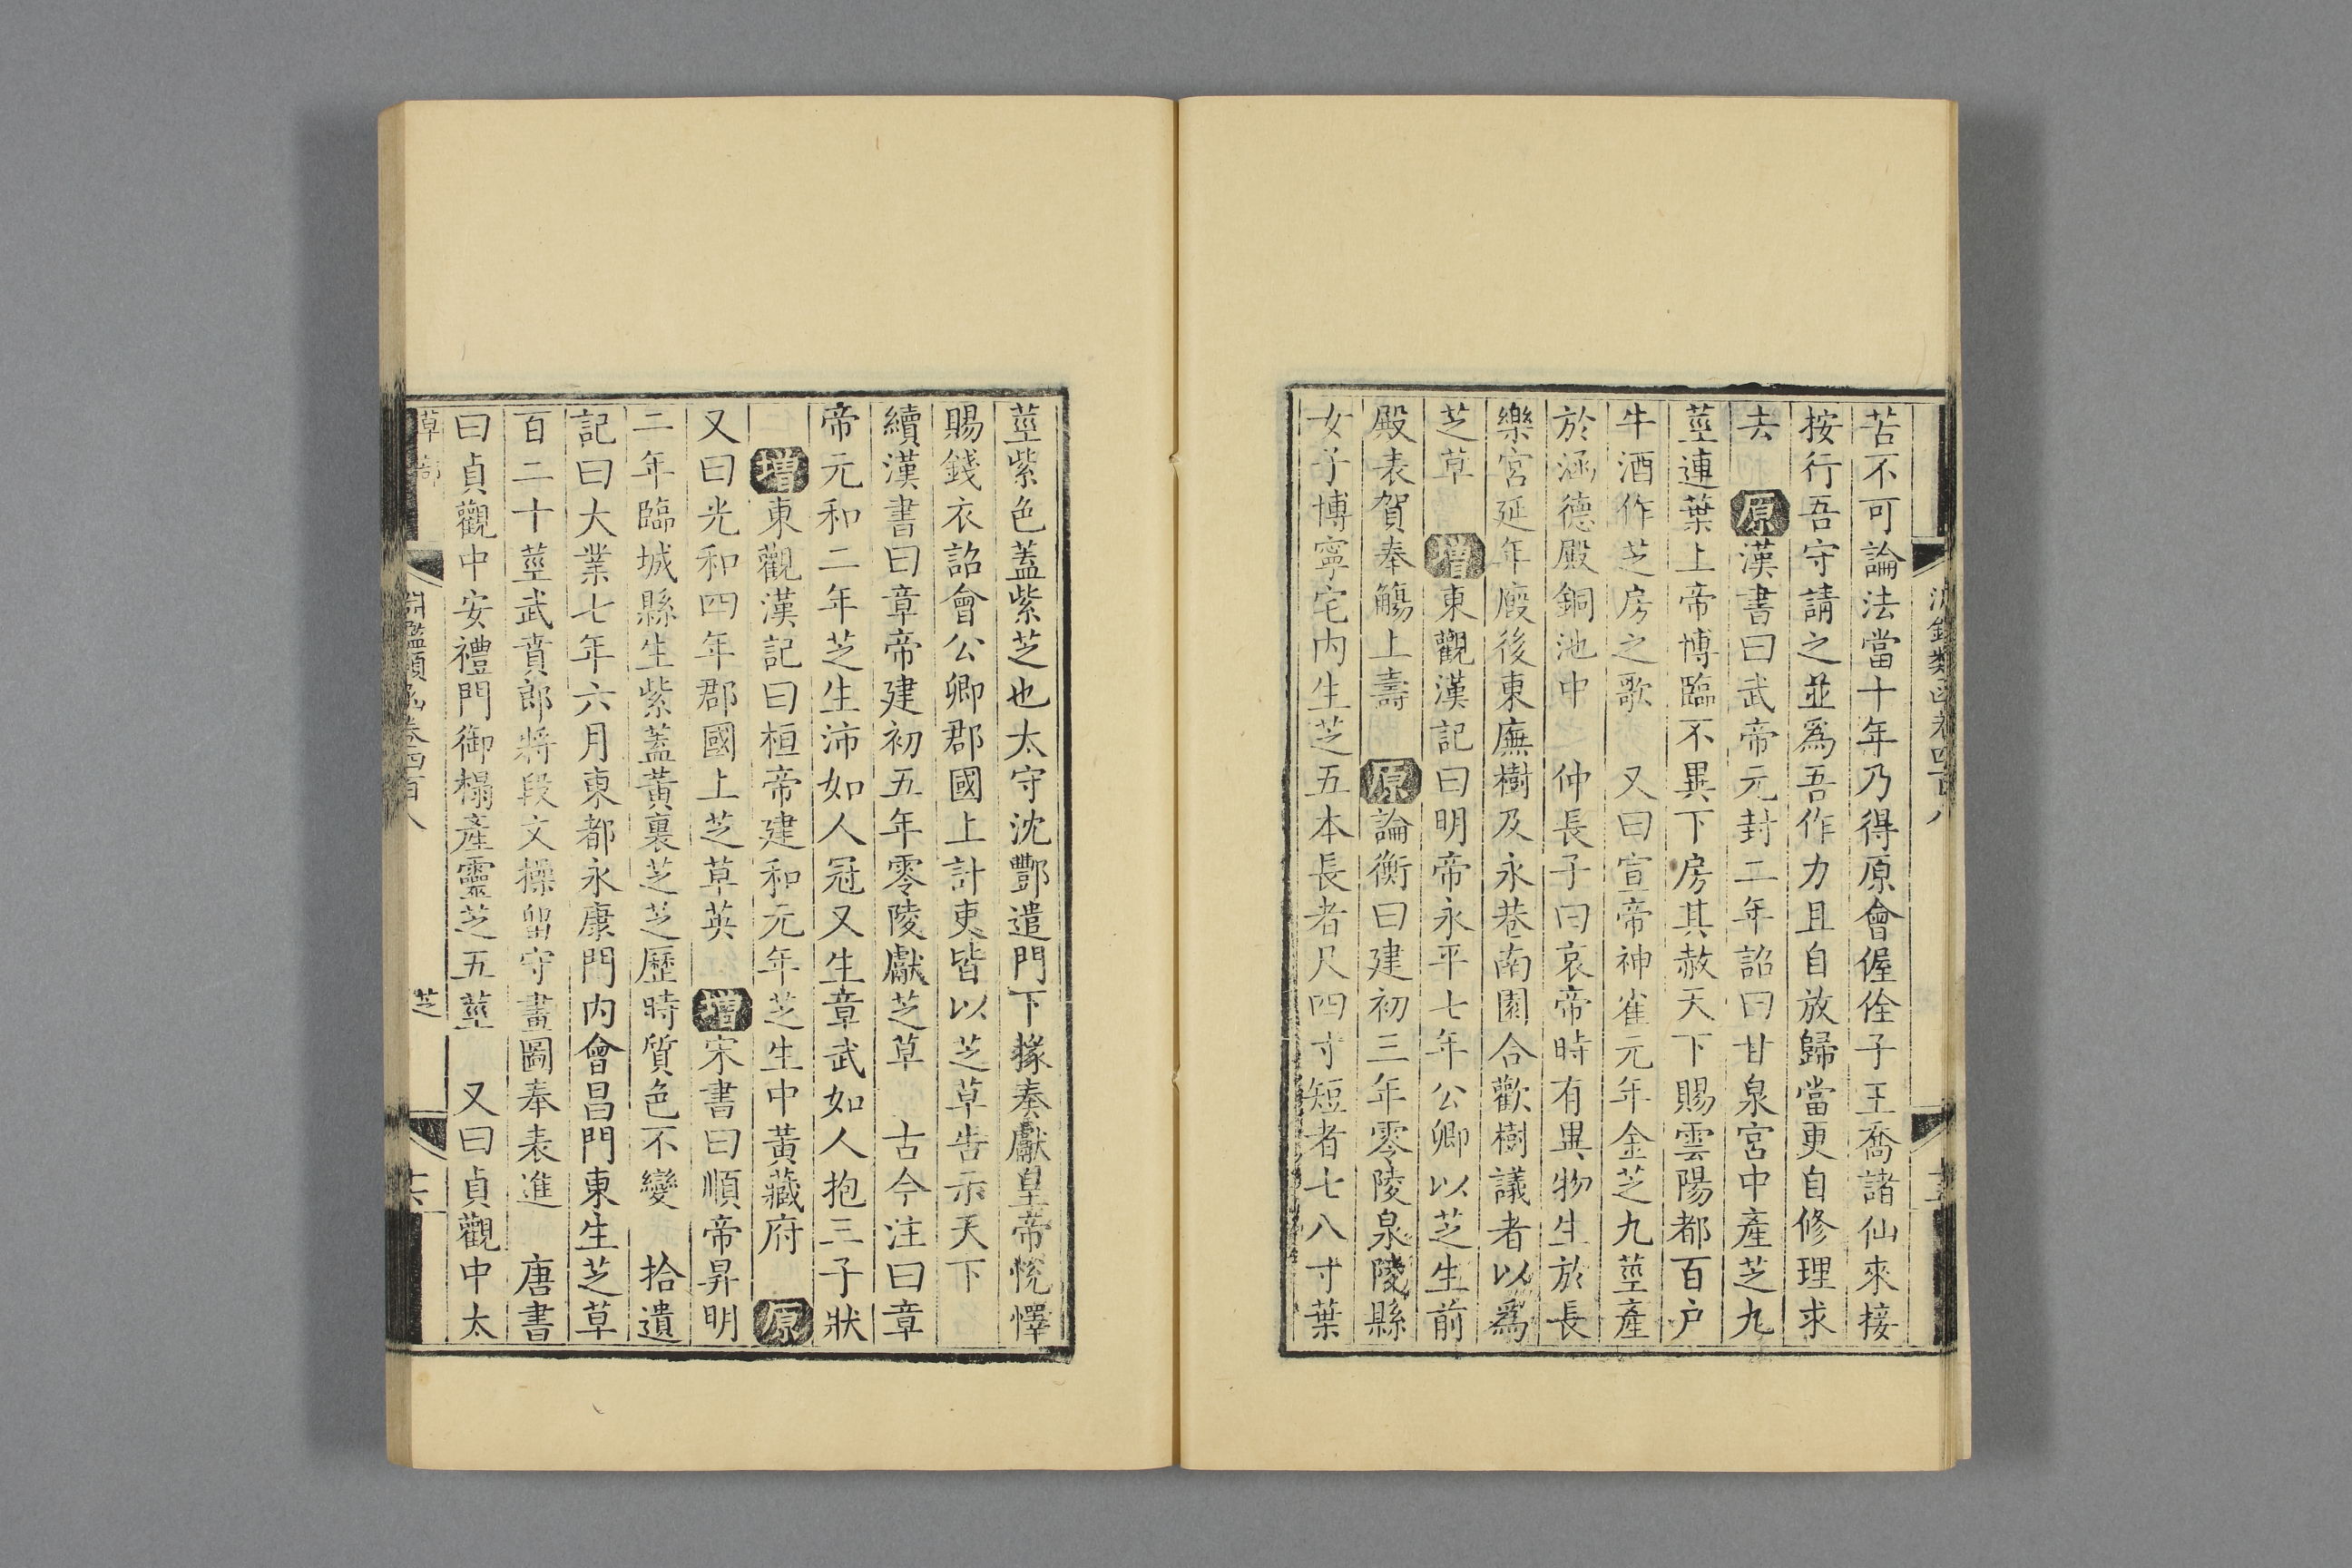 苦不可論法當十年乃得原會偓佺子王喬諸仙來接
按行吾守請之並爲吾作力且自放歸當更自修理求
去 原漢書曰武帝元封二年詔曰甘泉宮中產芝九
莖連葉上帝博臨不異下房其赦天下賜雲陽都百户
牛酒作芝房之歌 又曰宣帝神雀元年金芝九莖產
於涵德殿銅池中 仲長子曰哀帝時有異物生於長
樂宮延年殿後東廡樹及永巷南園合歡樹議者以爲
芝草 增東觀漢記曰明帝永平七年公卿以芝生前
殿表賀奉觴上壽 原論衡曰建初三年零陵泉陵縣
女子博寧宅内生芝五本長者尺四寸短者七八寸葉
莖紫色蓋紫芝也太守沈酆遣門下掾奏獻皇帝悅懌
賜錢衣詔會公卿郡國上計吏皆以芝草告示天下
續漢書曰章帝建初五年零陵獻芝草 古今注曰章
帝元和二年芝生沛如人冠又生章武如人抱三子狀
增東觀漢記曰桓帝建和元年芝生中黃藏府 原
又曰光和四年郡國上芝草英 增宋書曰順帝昇明
二年臨城縣生紫蓋黃裏芝芝歷時質色不變 拾遺
記曰大業七年六月東都永康門内會昌門東生芝草
百二十莖武賁郎將段文操留守畫圖奉表進 唐書
曰貞觀中安禮門御榻產靈芝五莖 又曰貞觀中太
草部 淵鑑類函卷四百八 芝